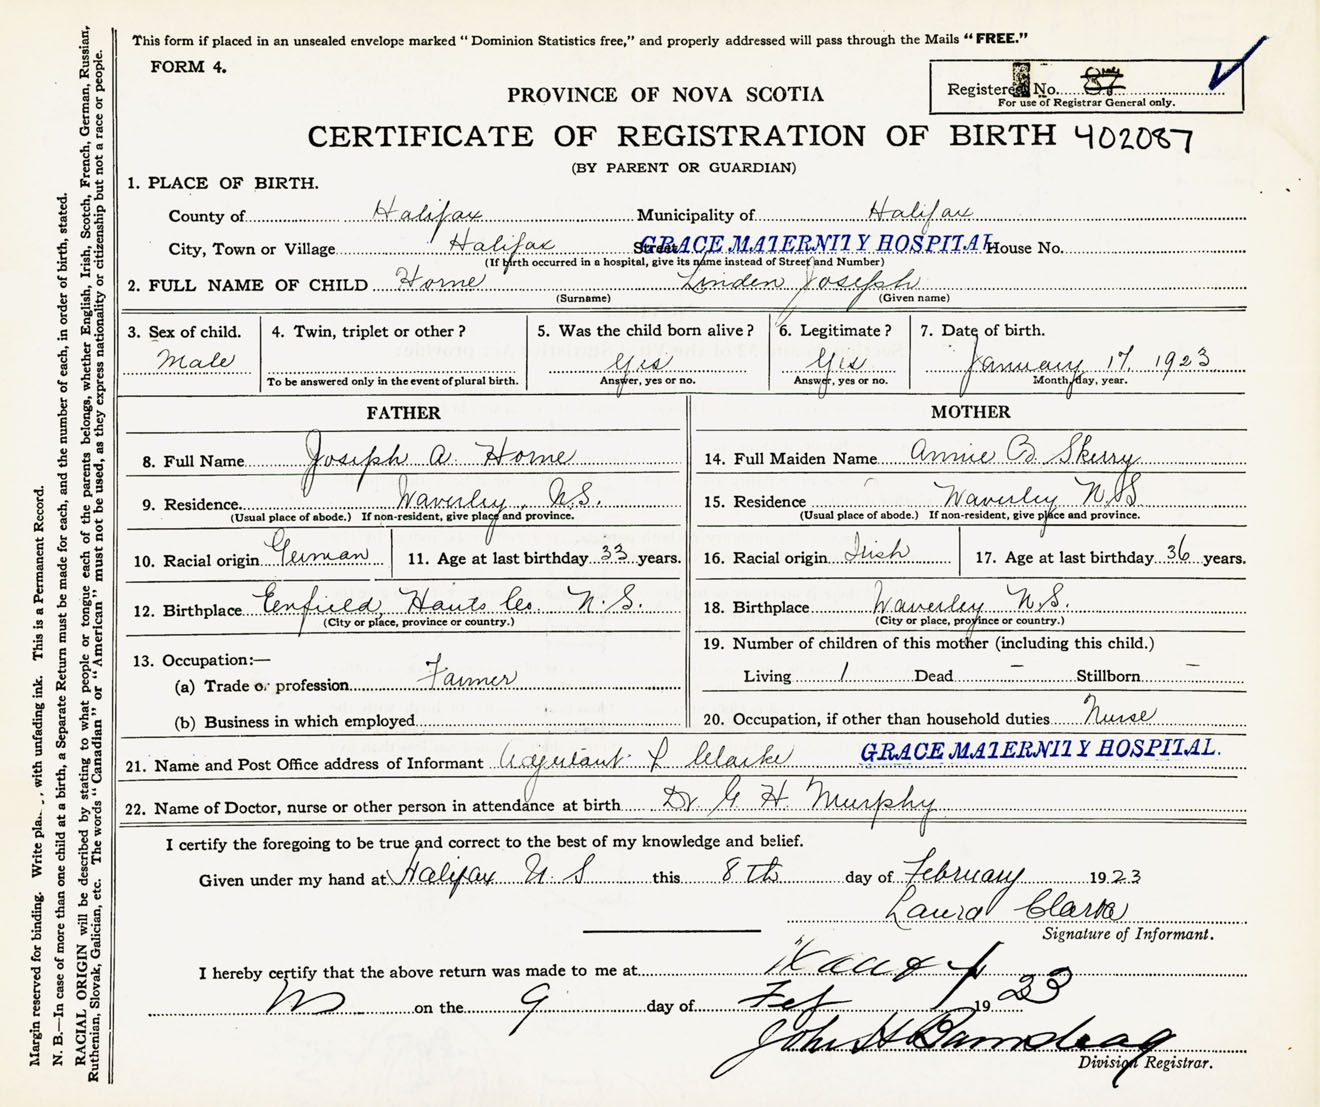 This form if placed in an unsealed envelope marked "Dominion Statistics free," and properly addressed will pass through the Mails "FREE."
FORM 4.
Registered No.
For use of Registrar General only.
PROVINCE OF NOVA SCOTIA
CERTIFICATE OF REGISTRATION OF BIRTH 402087
(BY PARENT OR GUARDIAN)
1. PLACE OF BIRTH.
County of Halifax Municipality of Halifax
City, Town or Village Halifax Street GRACE MATERNITY HOSPITAL House No.
(If birth occurred in a hospital, give its name instead of Street and Number)
2. FULL NAME OF CHILD Horne Linden Joseph
(Surname) (Given name)
3. Sex of child. 4. Twin, triplet or other? 5. Was the child born alive? 6. Legitimate? 7. Date of birth.
Male Yes Yes January 17, 1923
To be answered only in the event of plural birth. Answer, yes or no. Answer, yes or no. Month, day, year.
FATHER MOTHER
8. Full Name Joseph A. Horne 14. Full Maiden Name Annie B Skerry
9. Residence Waverley, N.S. 15. Residence Waverley N.S
(Usual place of abode.) If non-resident, give place and province. (Usual place of abode.) If non-resident, give place and province.
10. Racial origin German 11. Age at last birthday 33 years. 16. Racial origin Irish 17. Age at last birthday 36 years.
12. Birthplace Enfield, Hants Co. N.S. 18. Birthplace Waverley N.S.
(City or place, province or country.) (City or place, province or country.)
19. Number of children of this mother (including this child.)
13. Occupation:—
(a) Trade or profession Farmer Living 1 Dead – Stillborn –
(b) Business in which employed 20. Occupation, if other than household duties Nurse
21. Name and Post Office address of Informant Adjutant L Clarke GRACE MATERNITY HOSPITAL.
22. Name of Doctor, nurse or other person in attendance at birth Dr G H Murphy
I certify the foregoing to be true and correct to the best of my knowledge and belief.
Given under my hand at Halifax N S this 8th day of February 1923
Laura Clarke
Signature of Informant.
I hereby certify that the above return was made to me at
on the 9 day of Feb 1923
John H
Division Registrar.
Margin reserved for binding. Write , with unfading ink. This is a Permanent Record.
N. B.—In case of more than one child at a birth, a Separate Return must be made for each, and the number of each, in order of birth, stated.
RACIAL ORIGIN will be described by stating to what people or tongue each of the parents belongs, whether English, Irish, Scotch, French, German, Russian,
Ruthenian, Slovak, Galician, etc. The words "Canadian" or "American" must not be used, as they express nationality or citizenship but not a race or people.